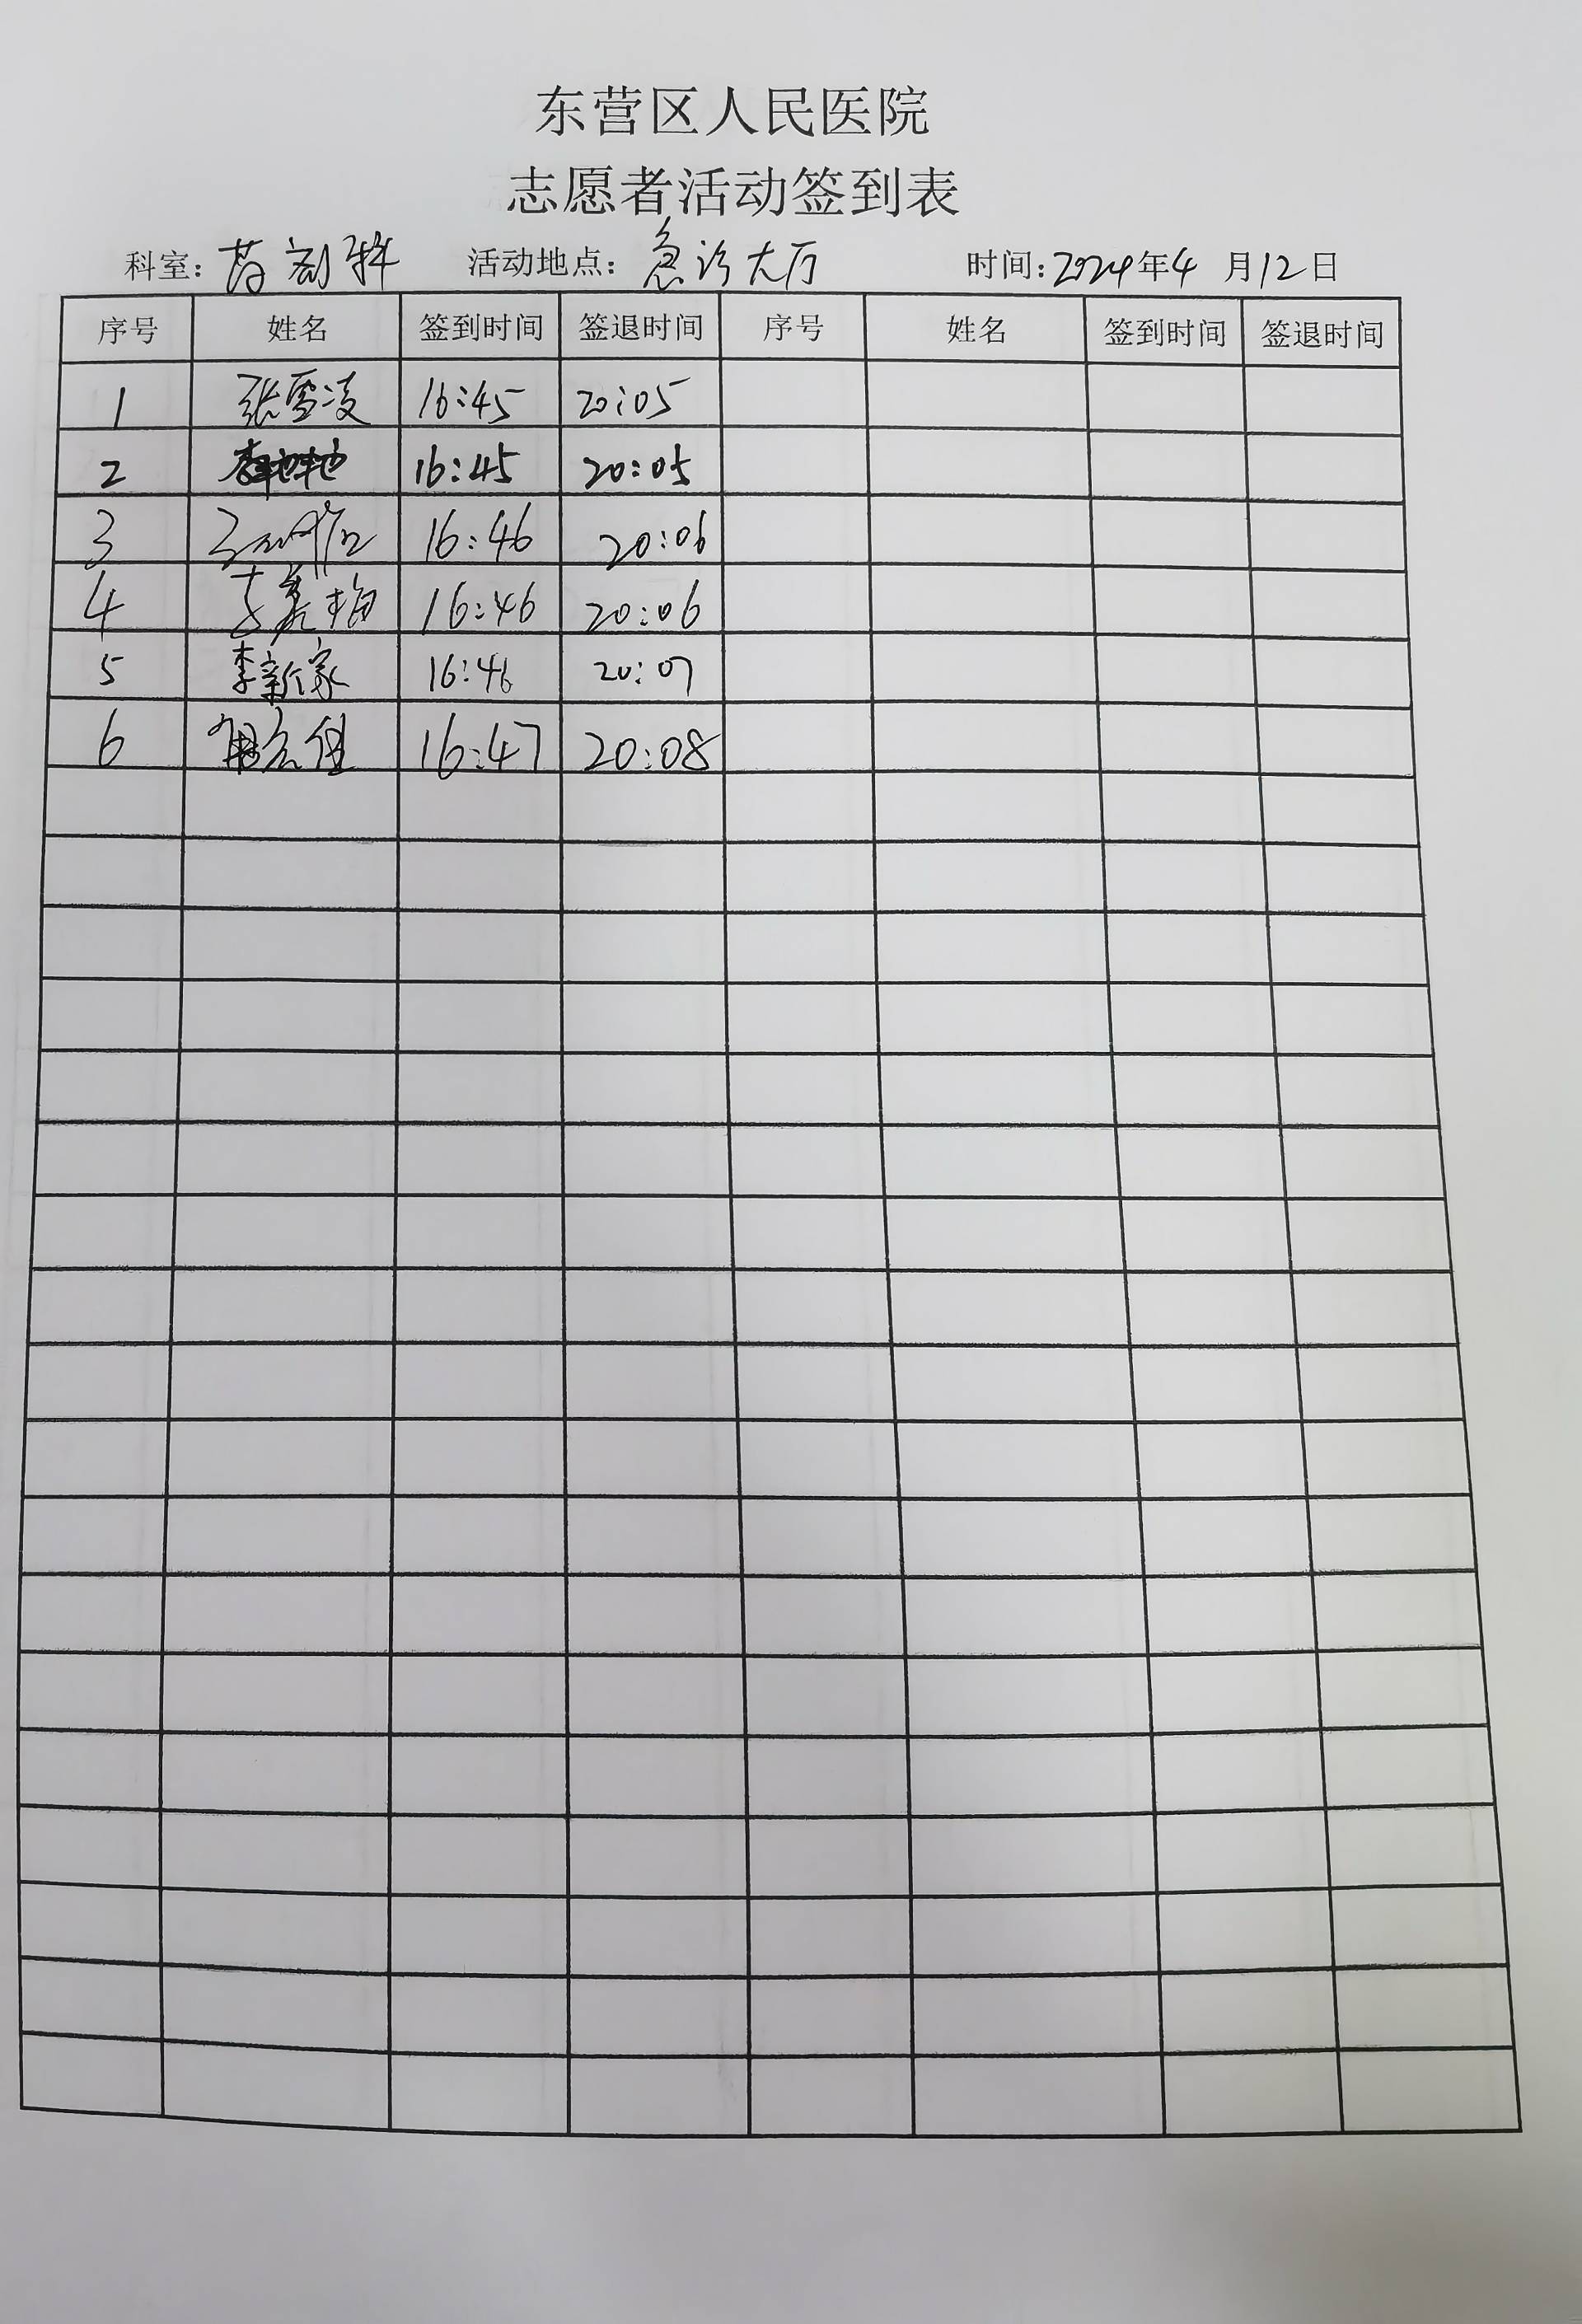 东营区人民医院
志愿者活动签到表
科室：药剂科 活动地点：急诊大厅 时间：2024年4月12日
序号 姓名 签到时间 签退时间 序号 姓名 签到时间 签退时间
1 张雪凌 16:45 20:05
2 16:45 20:05
3 16:46 20:06
4 16:46 20:06
5 李新家 16:46 20:07
6 16:47 20:08